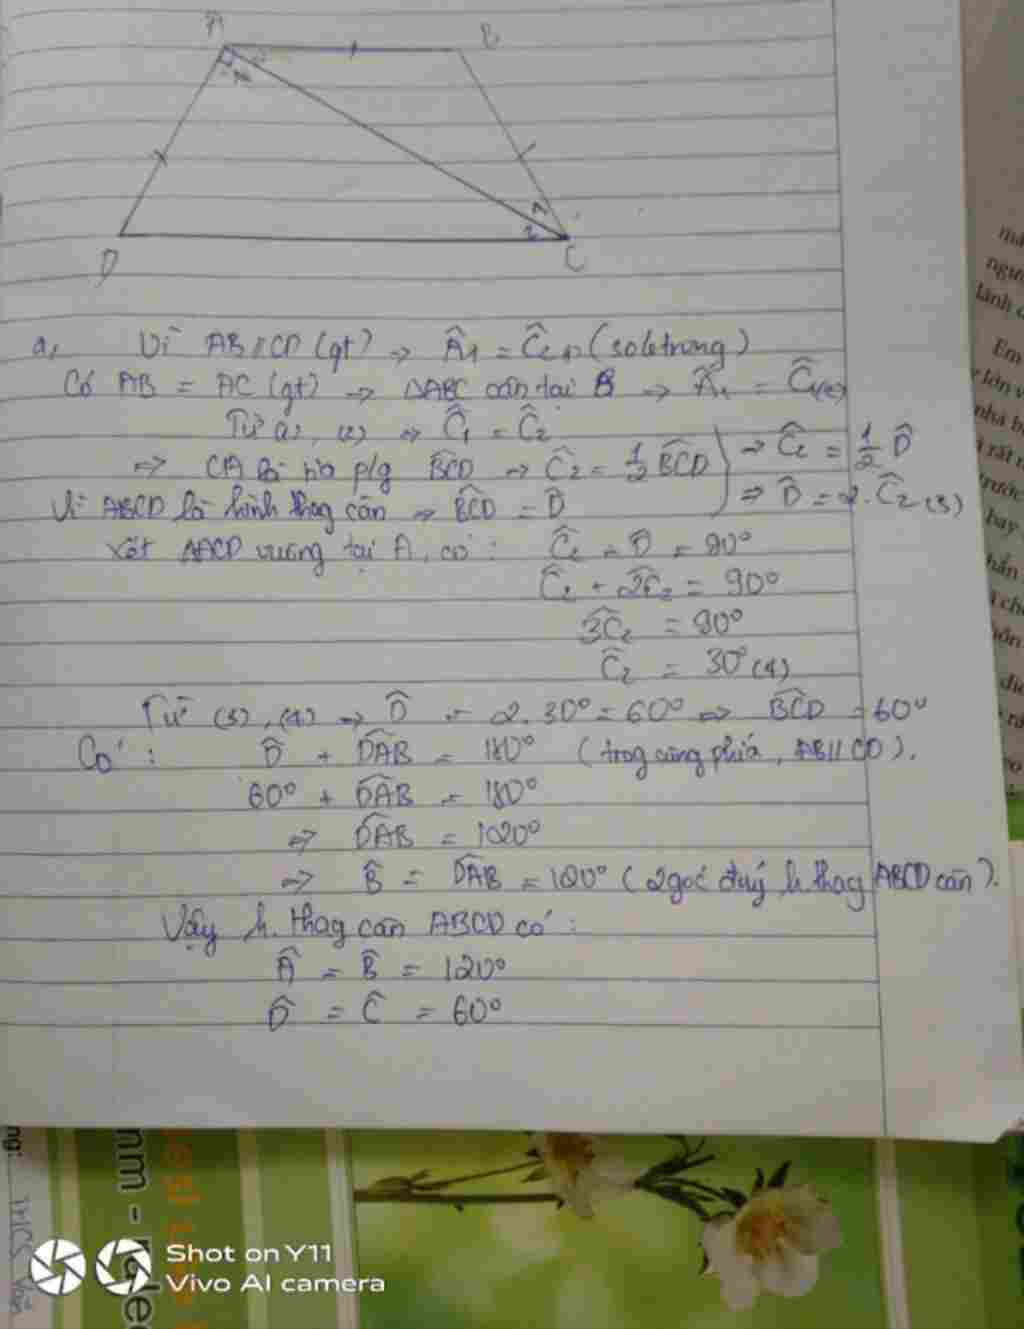 A
B
1
2
D
C
a, Vì AB // CD (gt) => Â1 = Ĉ2 (1) (so le trong)
Có AB = AC (gt) => ΔABC cân tại B => Â1 = Ĉ1 (2)
Từ (1), (2) => Ĉ1 = Ĉ2
=> CA là tia p/g BCD => Ĉ2 = 1/2 BCD => Ĉ2 = 1/2 D̂
Vì ABCD là hình thag cân => BCD = D̂ => D̂ = 2.Ĉ2 (3)
Xét ΔACD vuông tại A, có: Ĉ2 + D̂ = 90°
Ĉ2 + 2Ĉ2 = 90°
3Ĉ2 = 90°
Ĉ2 = 30° (4)
Từ (3), (4) => D̂ = 2.30° = 60° => BCD = 60°
Có: D̂ + DAB = 180° (trog cùng phía, AB // CD).
60° + DAB = 180°
=> DAB = 120°
=> B̂ = DAB = 120° (2 góc đáy h.thag ABCD cân).
Vậy h.thag cân ABCD có:
Â = B̂ = 120°
D̂ = Ĉ = 60°
lành
Em
lớn
nhà
rất
trước
hay
Shot on Y11
Vivo AI camera